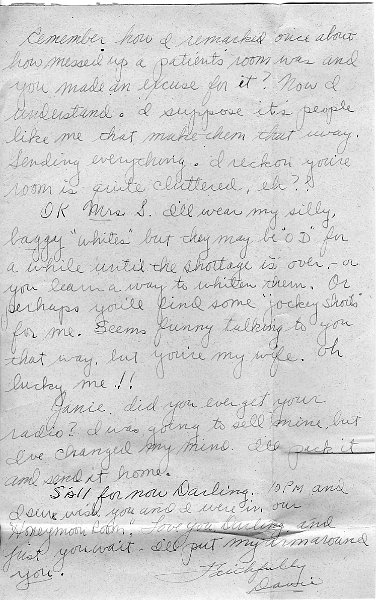 Remember how I remarked once about
how messed up a patients room was and
you made an excuse for it? Now I
understand. I suppose it's people
like me that make them that way.
Sending everything. I reckon you're
room is quite cluttered, eh??
OK Mrs S. I'll wear my silly,
baggy "whites" but they may be "OD" for
a while until the shortage is over, - or
you learn a way to whiten them. Or
perhaps you'll find some "jockey shorts"
for me. Seems funny talking to you
that way, but you're my wife. Oh
lucky me!!
Janie, did you ever get your
radio? I was going to sell mine, but
I've changed my mind. I'll pack it
and send it home.
S'All for now Darling. 10 PM and
I sure wish you and I were in our
Honeymoon Room. Love you Darling and
just you wait - I'll put my arms around
you.
Faithfully